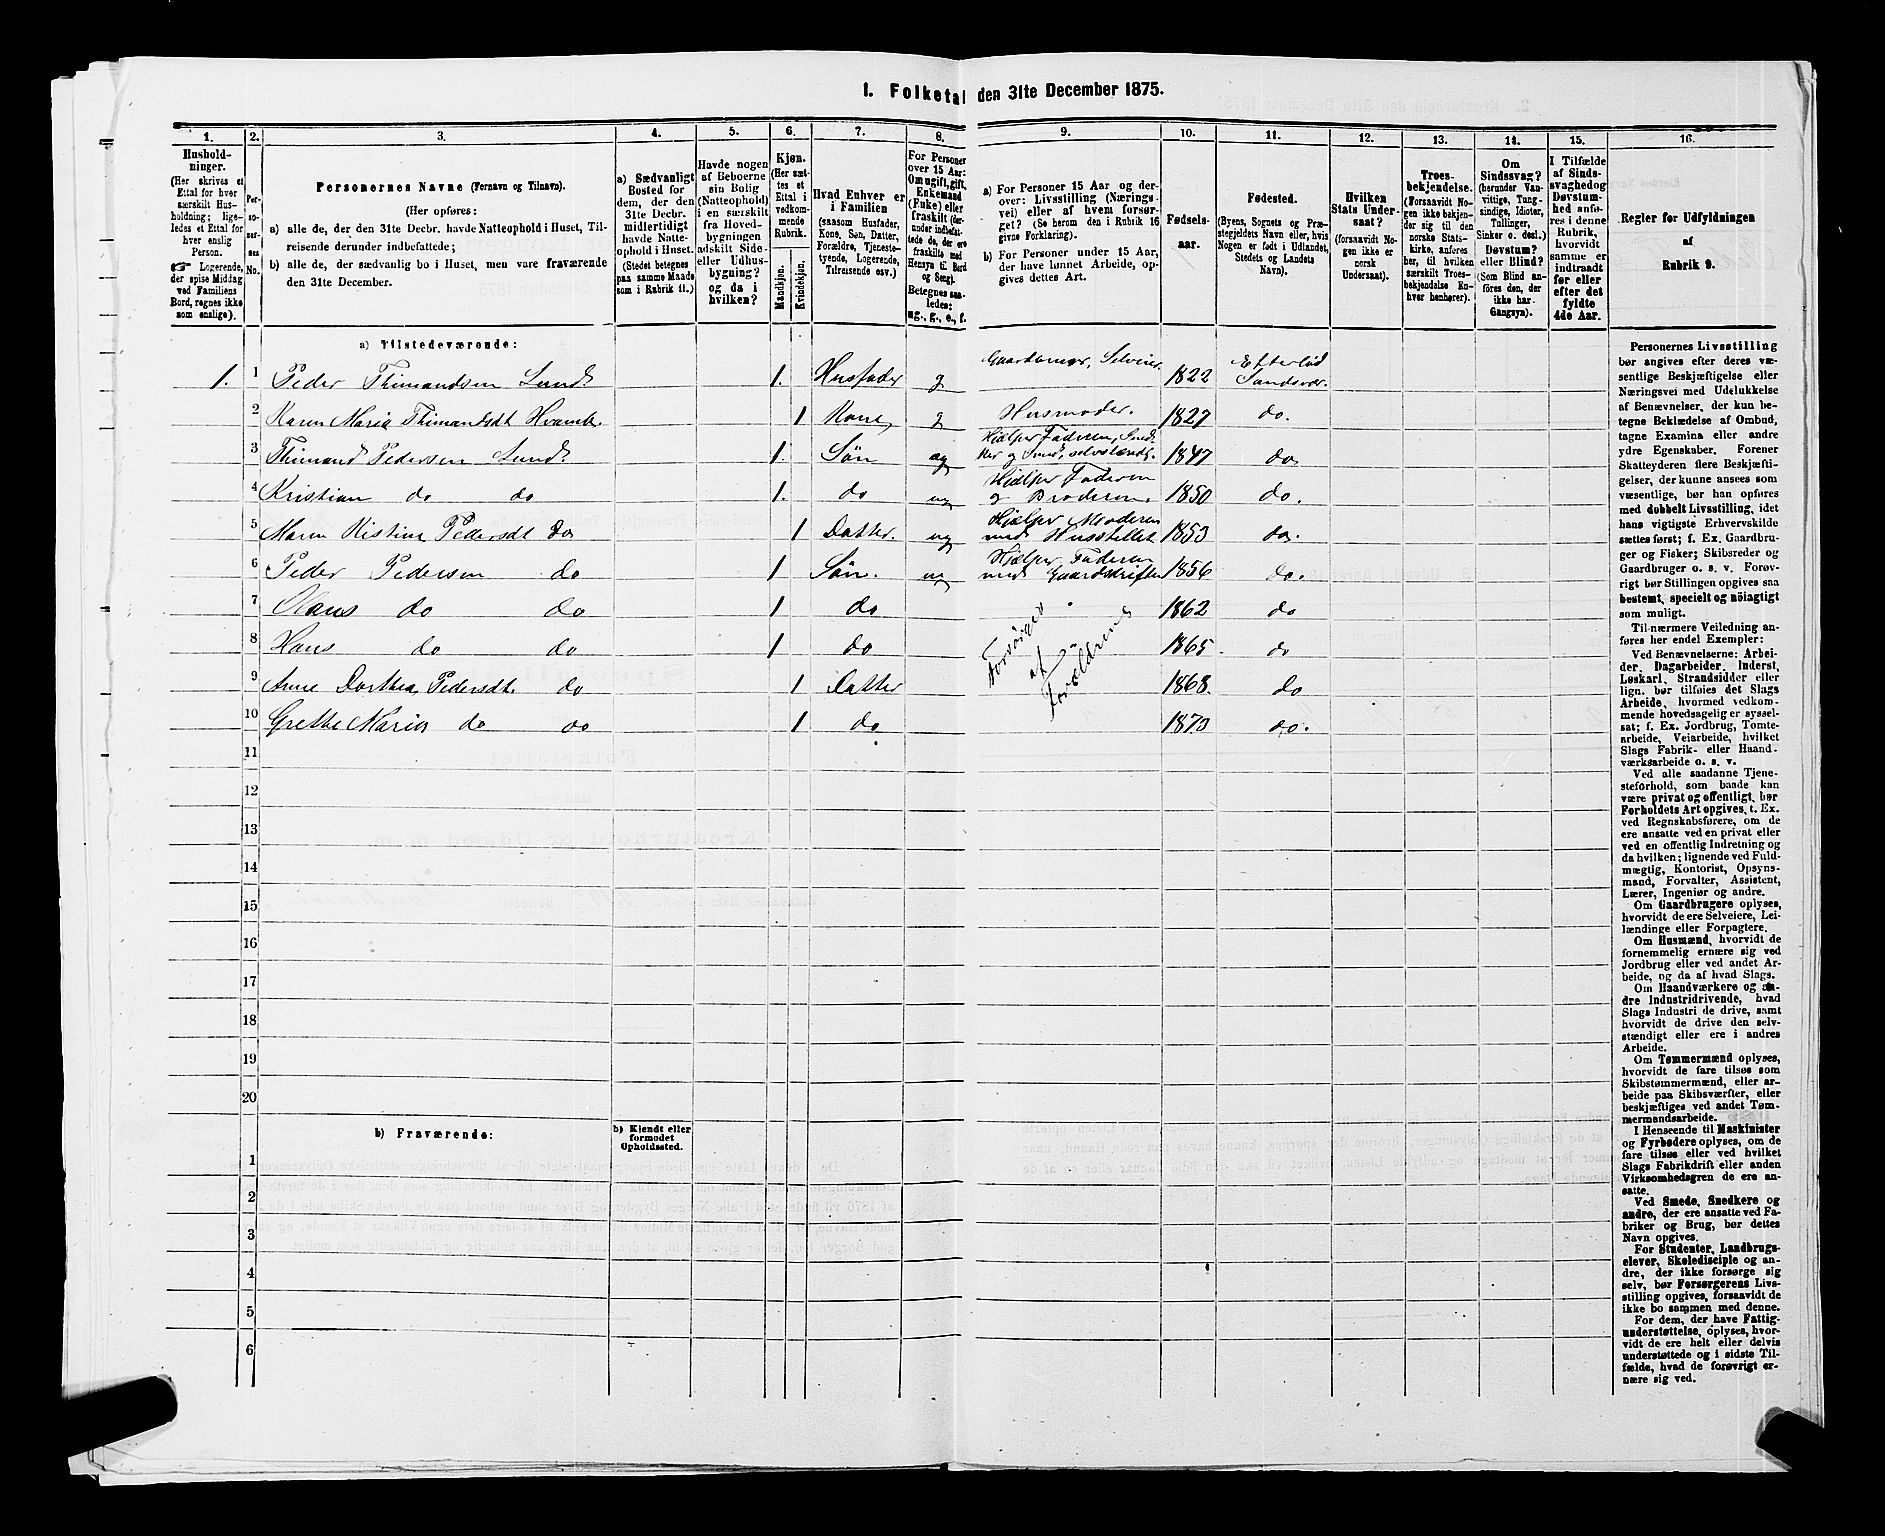 1. Folketal den 31te December 1875.
1. 2. 3. 4. 5. 6. 7. 8. 9. 10. 11. 12. 13. 14. 15. 16.
Hushold-
ninger.
(Her skrives et
Ettal for hver
særskilt Hus-
holdning; lige-
ledes et Ettal
for hver
enslig
Person.
☞ Logerende,
der spise Middag
ved Familiens
Bord, regnes ikke
som enslige).
Per-
so-
ner-
nes
No.
Personernes Navne (Fornavn og Tilnavn).
(Her opføres:
a) alle de, der den 31te Decbr. havde Natteophold i Huset, Til-
reisende derunder indbefattede;
b) alle de, der sædvanlig bo i Huset, men vare fraværende
den 31te December.
a) Sædvanligt
Bosted for
dem, der den
31te Decbr.
midlertidigt
havde Natte-
ophold i Huset.
(Stedet betegnes
paa samme Maade
som i Rubrik 11.)
Havde nogen
af Beboerne
sin Bolig
(Natteophold)
i en særskilt
fra Hoved-
bygningen
adskilt Side-
eller Udhus-
bygning?
og da i
hvilken?
Kjøn.
(Her sæt-
tes et
Ettal i
vedkom-
mende
Rubrik.
Mandkjøn.
Kvindekjøn.
Hvad Enhver er
i Familien
(saasom Husfader,
Kone, Søn, Datter,
Forældre, Tjeneste-
tyende, Logerende,
Tilreisende osv.)
For Personer
over 15 Aar:
Om ugift, gift,
Enkemand
(Enke) eller
fraskilt (der-
under indbefat-
tede de, der ere
fraskilte med
Hensyn til Bord
og Seng).
Betegnes saa-
ledes:
ug., g., e., f.
a) For Personer 15 Aar og der-
over: Livsstilling (Nærings-
vei) eller af hvem forsør-
get? (Se herom den i Rubrik 16
givne Forklaring).
b) For Personer under 15 Aar,
der have lønnet Arbeide, op-
gives dettes Art.
Fødsels-
aar.
Fødested.
(Byens, Sognets og Præ-
stegjeldets Navn eller, hvis
Nogen er født i Udlandet,
Stedets og Landets
Navn).
Hvilken
Stats Under-
saat?
(forsaavidt No-
gen ikke er
norsk
Undersaat).
Troes-
bekjendelse.
(Forsaavidt No-
gen ikke bekjen-
der sig til den
norske Stats-
kirke, anføres
her, til hvilken
særskilt Troes-
bekjendelse En-
hver henhører).
Om
Sindssvag?
(herunder Van-
vittige, Tung-
sindige, Idioter,
Tullinger,
Sinker o. desl.)
Døvstum?
eller Blind?
(Som Blind an-
føres den, der
ikke har
Gangsyn).
I Tilfælde
af Sinds-
svaghed og
Døvstum-
hed anfø-
res i denne
Rubrik,
hvorvidt
samme er
indtraadt
før eller
efter det
fyldte
4de Aar.
Regler for Udfyldningen
af
Rubrik 9.
a) Tilstedeværende:
1. 1 Peder Thimandsen Lund 1. Husfader g Gaardbruger, Selveier 1822 Eftelød Sandsvær.
2 Karen Maria Thimandsdt Hvamb. 1 Kone g Husmoder. 1827 do.
3 Thimand Pedersen Lund. 1. Søn ug Hjælper Faderen, Sned-
ker og Smed, selvstændig. 1847 do.
4 Kristian do do 1. do ug Hjælper Faderen
og Broderen. 1850 do.
5 Maren Kistine Pedersdt do 1 Datter. ug Hjælper Moderen
med Husstellet 1853 do.
6 Peder Pedersen do 1 Søn. ug Hjælper Faderen
med Gaardsdriften 1856 do.
7 Claus do do 1 do 1862 do
8 Hans do do 1 do 1865 do
Forsørges
af
Forældrene
9 Anne Dorthea Pedersdt. do 1 Datter 1868. do
10 Grethe Maria do do 1 do 1873 do.
11
12
13
14
15
16
17
18
19
20
b) Fraværende:
b) Kjendt eller
formodet
Opholdssted.
1
2
3
4
5
6
Personernes Livsstilling
bør angives efter deres væ-
sentlige Beskjæftigelse eller
Næringsvei med Udelukkelse
af Benævnelser, der kun be-
tegne Beklædelse af Ombud,
tagne Examina eller andre
ydre Egenskaber. Forener
Skatteyderen flere Beskjæfti-
gelser, der kunne ansees som
væsentlige, bør han opføres
med dobbelt Livsstilling, idet
hans vigtigste Erhvervskilde
sættes først; f. Ex. Gaardbru-
ger og Fisker; Skibsreder og
Gaardbruger o. s. v. Forøv-
rigt bør Stillingen opgives saa
bestemt, specielt og nøiagtigt
som muligt.
Til nærmere Veiledning an-
føres her endel Exempler:
Ved Benævnelserne: Arbei-
der, Dagarbeider, Inderst,
Løskarl, Strandsidder eller
lign. bør tilføies det Slags
Arbeide, hvormed vedkom-
mende hovedsagelig er syssel-
sat; f. Ex. Jordbrug, Tomte-
arbeide, Veiarbeide, hvilket
Slags Fabrik- eller Haand-
værksarbeide o. s. v.
Ved alle saadanne Tjene-
steforhold, som baade kan
være privat og offentligt, bør
Forholdets Art opgives, t. Ex.
ved Regnskabsførere, om de
ere ansatte ved en privat eller
ved en offentlig Indretning og
da hvilken; lignende ved Fuld-
mægtig, Kontorist, Opsyns-
mand, Forvalter, Assistent,
Lærer, Ingeniør og andre.
Om Gaardbrugere oplyses,
hvorvidt de ere Selveiere, Lei-
lændinge eller Forpagtere.
Om Husmænd, hvorvidt de
fornemmelig ernære sig ved
Jordbrug eller ved andet Ar-
beide, og da af hvad Slags.
Om Haandværkere og an-
dre Industridrivende, hvad
Slags Industri de drive, samt
hvorvidt de drive den selv-
stændigt eller ere i andres
Arbeide.
Om Tømmermænd oplyses,
hvorvidt de fare tilsøs som
Skibstømmermænd, eller ar-
beide paa Skibsværfter, eller
beskjæftiges ved andet Tøm-
mermandsarbeide.
I Henseende til Maskinister
og Fyrbødere oplyses, om de
fare tilsøs eller ved hvilket
Slags Fabrikdrift eller anden
Virksomhedsgren de ere an-
satte.
Ved Smede, Snedkere og
andre, der ere ansatte ved Fa-
briker og Brug, bør dettes
Navn opgives.
For Studenter, Landbrugs-
elever, Skoledisciple og an-
dre, der ikke forsørge sig
selv, bør Forsørgerens Livs-
stilling opgives, forsaavidt de
ikke bo sammen med denne.
For dem, der have Fattig-
understøttelse, oplyses, hvor-
vidt de ere helt eller delvis
understøttede og i sidste Til-
fælde, hvad de forøvrigt er-
nære sig ved.